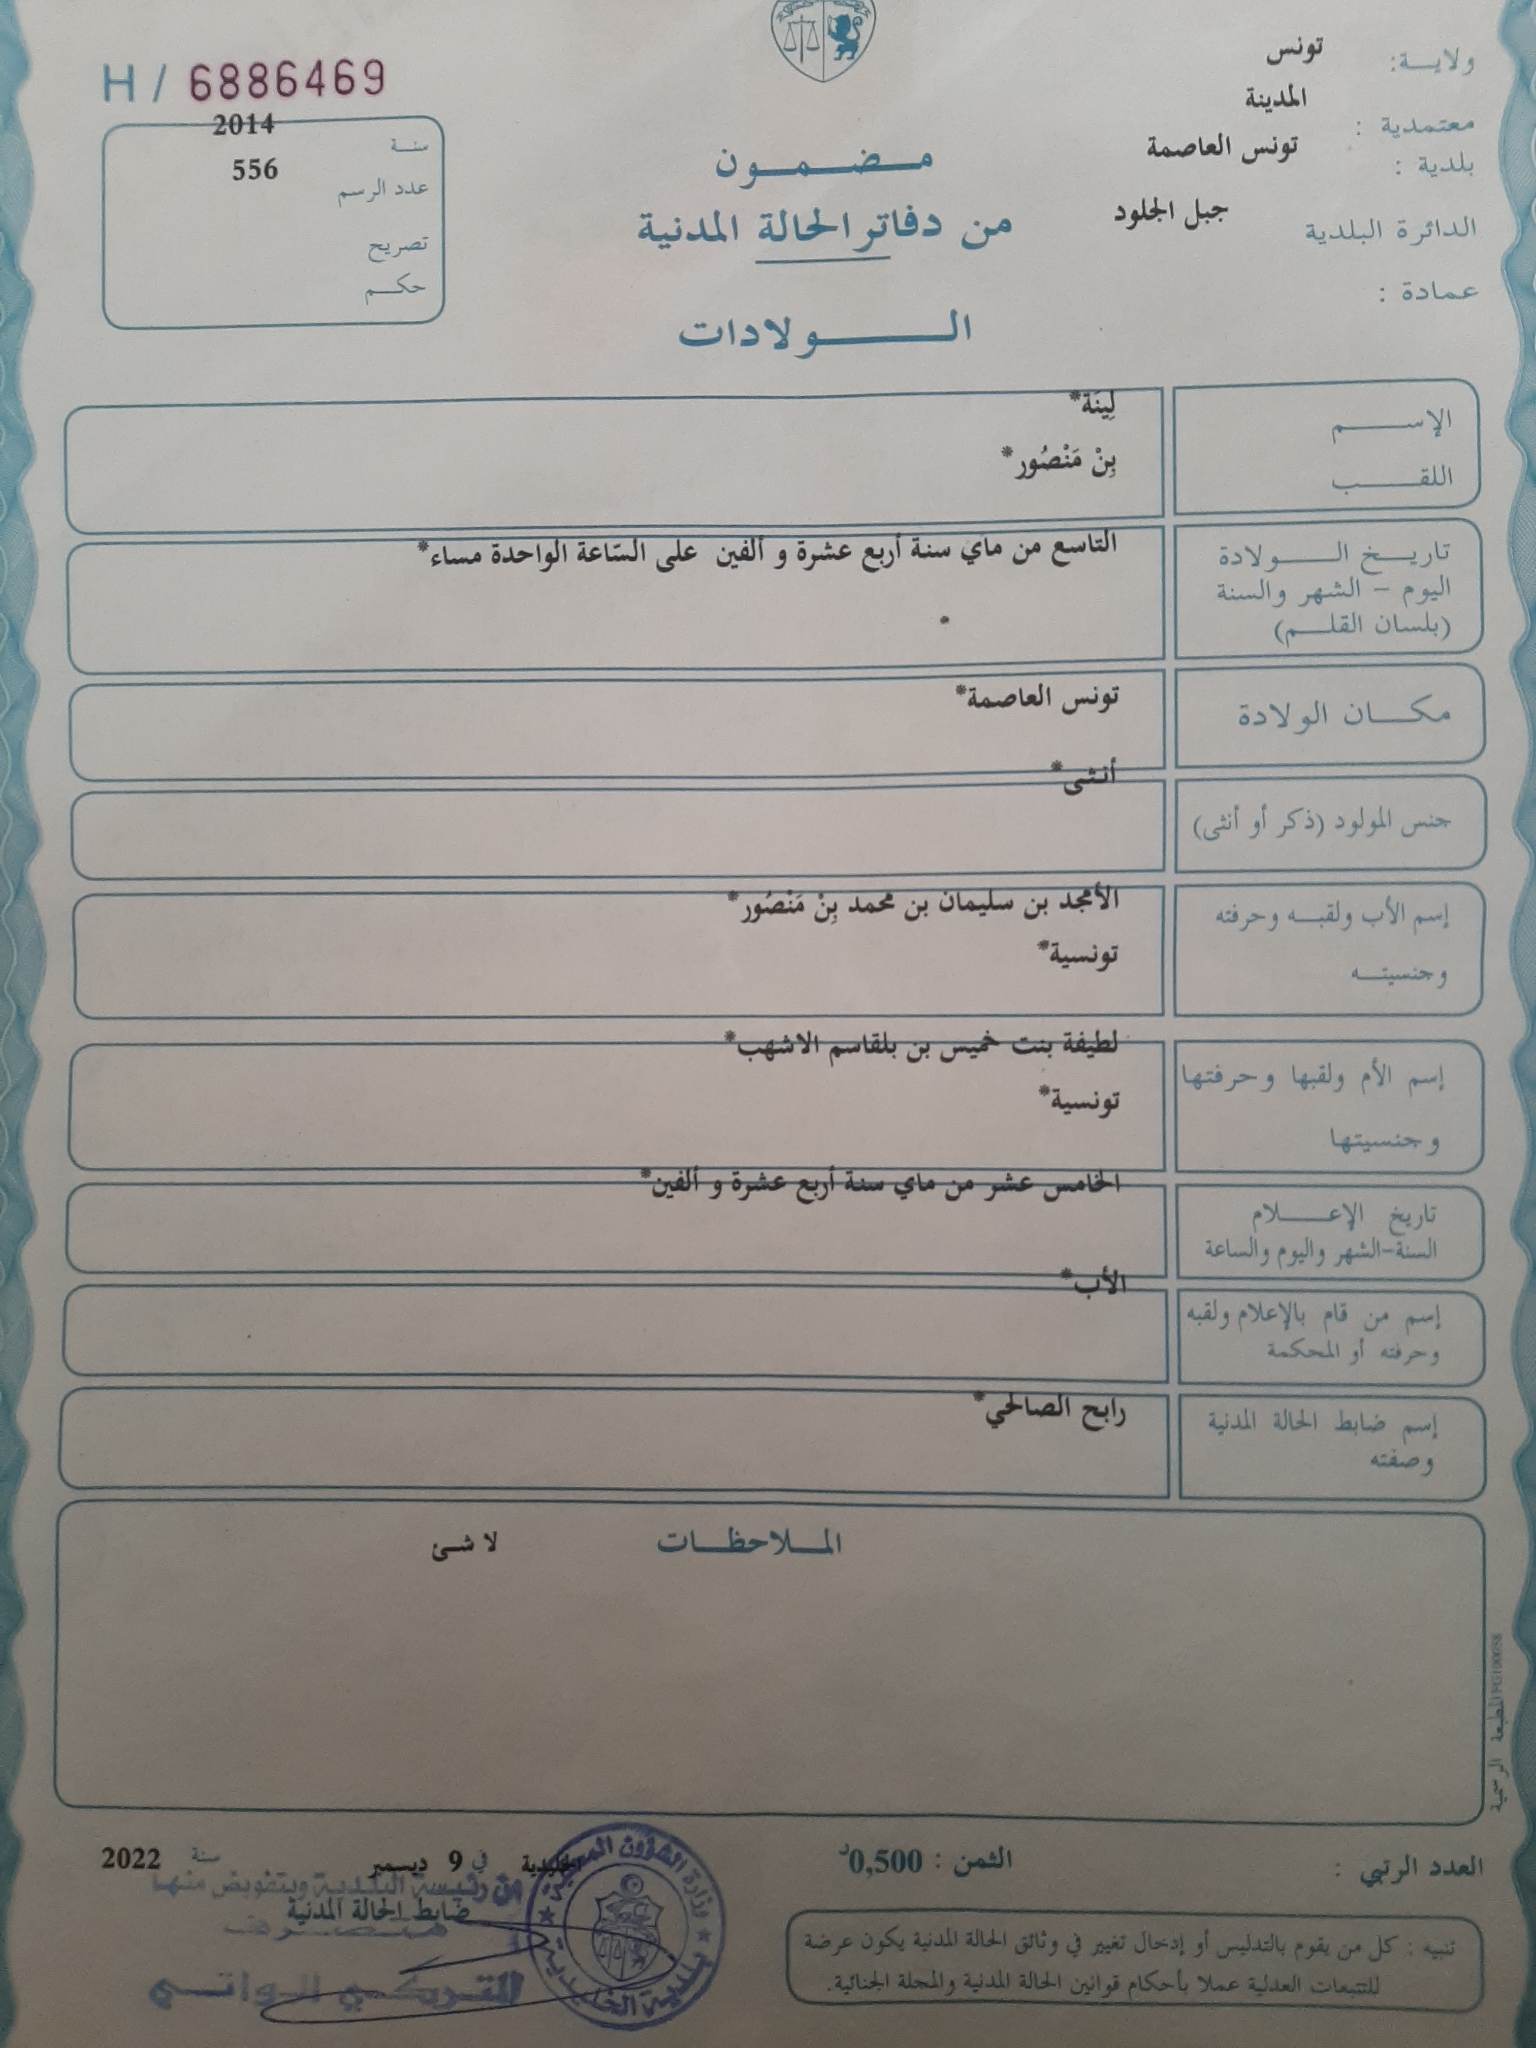 ولايـــة: تونس
معتمدية : المدينة
بلدية : تونس العاصمة
الدائرة البلدية جبل الجلود
عمادة :
H / 6886469
سنـة 2014
عدد الرسم 556
تصريح
حكـــم
مـــضـــمـــون
من دفاتر الحالة المدنية
الــــــولادات
الإســـــم لِينَة*
اللقـــــب بِنْ مَنْصُور*
تاريـــخ الـــــولادة التاسع من ماي سنة أربع عشرة و ألفين على السّاعة الواحدة مساء*
اليوم – الشهر والسنة
(بلسان القلـــم)
مكـــان الولادة تونس العاصمة*
جنس المولود (ذكر أو أنثى) أنثى*
إسم الأب ولقبـــه وحرفته الأمجد بن سليمان بن محمد بِنْ مَنْصُور*
وجنسيتـــه تونسية*
إسم الأم ولقبها وحرفتها لطيفة بنت خميس بن بلقاسم الاشهب*
وجنسيتها تونسية*
تاريخ الإعـــــلام الخامس عشر من ماي سنة أربع عشرة و ألفين*
السنة-الشهر واليوم والساعة
إسم من قام بالإعلام ولقبه الأب*
وحرفته أو المحكمة
إسم ضابط الحالة المدنية رابح الصالحي*
وصفته
المـــلاحظـــات لا شئ
المطبعة الرسمية
العدد الرتبي :
الثمن : 0,500د
الخليدية في 9 ديسمبر سنة 2022
عن رئيسة البلدية وبتفويض منها
ضابط الحالة المدنية
وزارة الشؤون المحلية
بلدية الخليدية
تنبيه : كل من يقوم بالتدليس أو إدخال تغيير في وثائق الحالة المدنية يكون عرضة
للتتبعات العدلية عملا بأحكام قوانين الحالة المدنية والمجلة الجنائية.